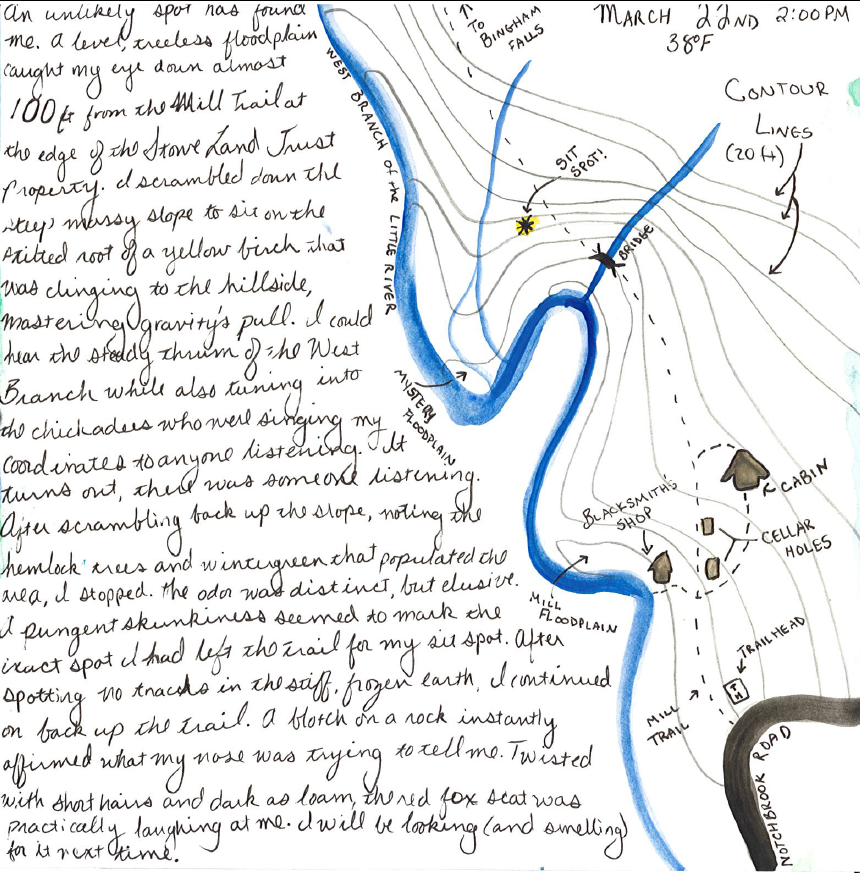 An unlikely spot has found
me. A level, treeless floodplain
caught my eye down almost
100 ft from the Mill Trail at
the edge of the Stowe Land Trust
Property. I scrambled down the
steep mossy slope to sit on the
stilted root of a yellow birch that
was clinging to the hillside,
mastering gravity's pull. I could
hear the steady thrum of the West
Branch while also tuning into
the chickadees who were singing my
coordinates to anyone listening. It
turns out, there was someone listening.
After scrambling back up the slope, noting the
hemlock trees and wintergreen that populated the
area, I stopped. The odor was distinct, but elusive.
A pungent skunkiness seemed to mark the
exact spot I had left the trail for my sit spot. After
spotting no tracks in the stiff, frozen earth, I continued
on back up the trail. A blotch on a rock instantly
affirmed what my nose was trying to tell me. Twisted
with short hairs and dark as loam, the red fox scat was
practically laughing at me. I will be looking (and smelling)
for it next time.
MARCH 22ND 2:00PM
38°F
TO
BINGHAM
FALLS
WEST BRANCH of the LITTLE RIVER
CONTOUR
LINES
(20 ft)
SIT
SPOT!
BRIDGE
MYSTERY
FLOODPLAIN
BLACKSMITH'S
SHOP
CABIN
CELLAR
HOLES
MILL
FLOODPLAIN
TRAILHEAD
TH
MILL
TRAIL
NOTCHBROOK ROAD